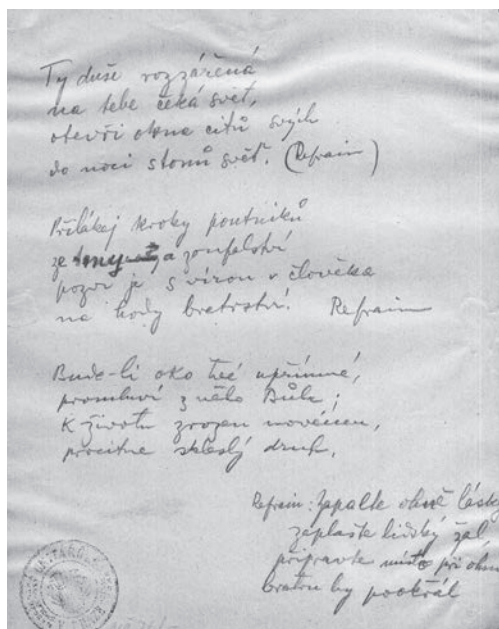 Ty duše rozzářená
na tebe čeká svět,
otevři okna citů svých
do noci stonů svět. (Refrain)
Přilákej kroky poutníků
ze tmy a zoufalství
pozvi je s vírou v člověka
na hody bratrství. Refrain
Bude-li oko tvé upřímné,
promluví z něho Bůh;
K životu zrozen novému,
procitne skleslý druh.
Refrain: Zapalte ohně lásky
zaplašte lidský žal,
připravte místo při ohni
bratru by pookřál